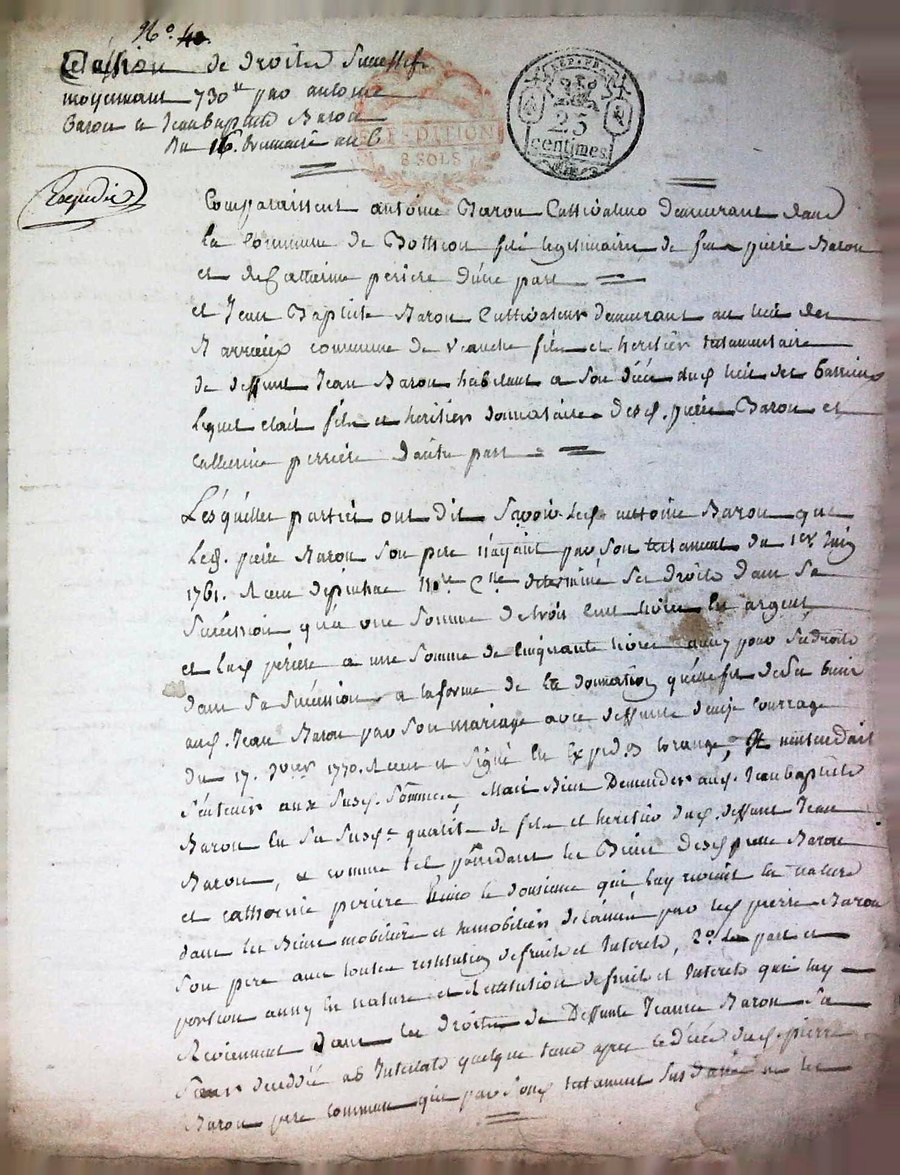 N° 40.
Cession de droits Successifs
moyennant 730tt par antoine
Baron a Jean Baptiste Baron
du 16. brumaire an 6
EXPEDITION
8 SOLS
REP. FRA
25
centimes
Expedié
Comparaissent antoine Baron Cultivateur demeurant dans
la Commune de Bothéon fils legitimaire de feu pierre Baron
et de Catterine periere d'une part
et Jean Baptiste Baron Cultivateur demeurant au lieu des
Barrieux commune de Veauche fils et heritier testamentaire
de deffunt Jean Baron habitant a son décés aud. lieu des barrieux
lequel etait fils et heritier donnataire desd. pierre Baron et
Catterine perriere d'autre part
Lesquelles parties ont dit Savoir led. antoine Baron que
led. pierre Baron son pere n'ayant par son testament du 1er Juin
1761. Recu depinhac Nore determiné ses droits dans sa
Succession qu'a une somme de trois cent livres en argent
et lad. périere a une somme de Cinquante livres aussy pour ses droits
dans sa Succession a la forme de la donnation qu'elle fit de ses biens
aud. Jean Baron par son mariage avec deffunte courrage
du 17. 1770. Recu et Signé en Exped. il n'entendait
s'en tenir aux susd. Sommes Mais Bien Demander aud. Jean baptiste
Baron en sa susd. qualité de fils et heritier dud. deffunt Jean
Baron, et comme tel possedant les Biens desd. pierre Baron
et catherine periere le douzieme qui luy revient en nature
dans les Biens mobiliers et immobiliers délaissés par led. pierre Baron
son pere avec toutes restitution de fruits et Interets, 2° la part et
portion aussy en nature et Restitution de fruits et Interets qui luy
Reviennent dans les droits de Deffunte Jeanne Baron sa
Soeur decedée ab Intestat quelque tems apres le décés dud. pierre
Baron pere commun qui par son testament susdatté ne les